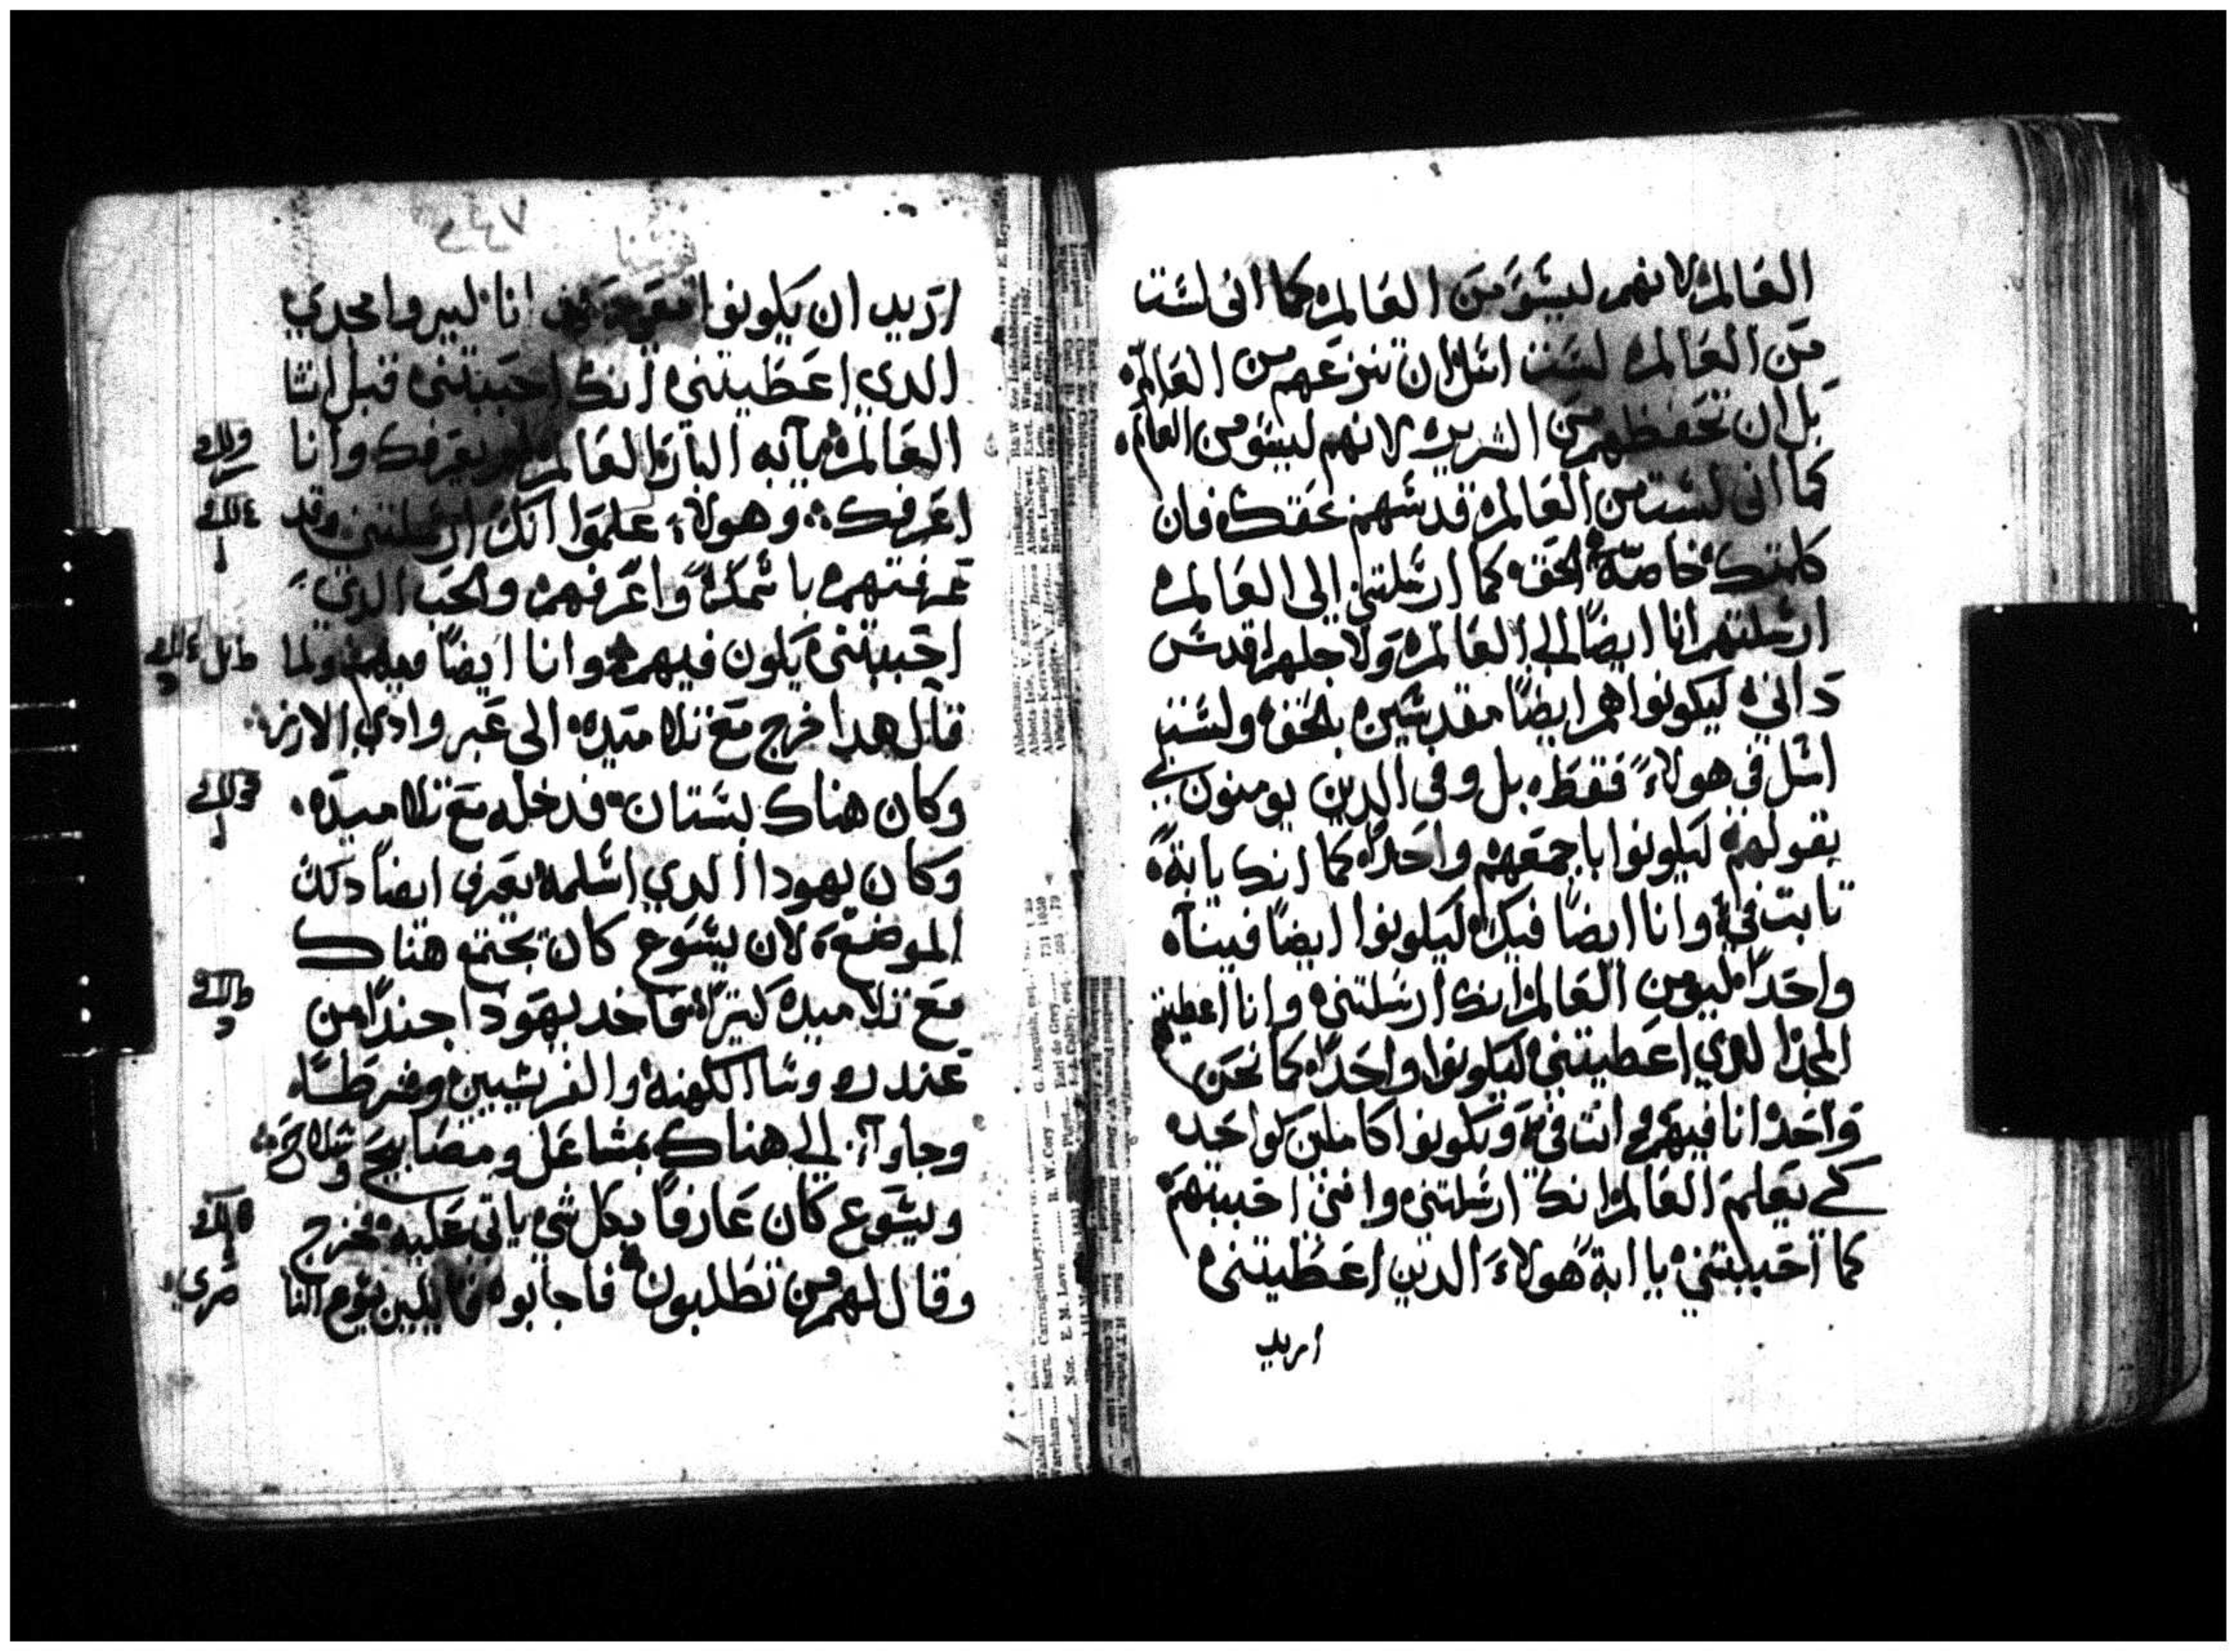 العالم لانهم ليسو من العالم كما اني لست
من العالم لست اسل ان تنزعهم من العالم
بل ان تحفظهم من الشرير لانهم ليسو من العالم
كما اني لست من العالم قدسهم بحقك فان
كلمتك خاصة الحق كما ارسلتني الى العالم
ارسلتهم انا ايضاً الى العالم ولاجلهم اقدس
داتي ليكونوا هم ايضاً مقدسين بالحق ولست
اسل في هولاء فقط بل وفي الدين يومنون بي
بقولهم ليكونوا باجمعهم واحداً كما انك يا ابة
تابت في وانا ايضاً فيك ليكونوا ايضاً فينا
واحداً ليومن العالم انك ارسلتني وانا اعطيتهم
المجد الدي اعطيتني ليكونوا واحداً كما نحن
واحد انا فيهم وانت في ويكونوا كاملين كواحد
كي يعلم العالم انك ارسلتني وانني احببتهم
كما احببتني يا ابة هولاء الدين اعطيتني
اريد
اريد ان يكونوا انا ليروا مجدي
الدي اعطيتني انك احببتني قبل انشا
العالم يا ابه البار العالم لم يعرفك وانا
اعرفك وهولاء علموا انك ارسلتني وقد
عرفتهم باسمك واعرفهم والحب الدي
احببتني يكون فيهم وانا ايضاً فيهم ولما
قال هدا خرج مع تلاميده الى عبر وادي الارز
وكان هناك بستان فدخله مع تلاميده
وكان يهودا الدي اسلمه يعرف ايضاً دلك
الموضع لان يسوع كان يجتمع هناك
مع تلاميده كتيراً فاخد يهودا جنداً من
عند روسا الكهنه والفريسيين وشرطا
وجاوا الى هناك بمشاعل ومصابيح وسلاح
ويسوع كان عارفاً بكل شي ياتي عليه فخرج
وقال لهم من تطلبون فاجابوه قايلين يسوع النا